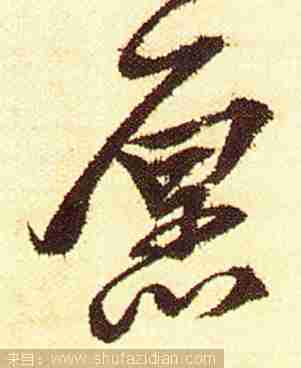 愿
来自：www.shufazidian.com